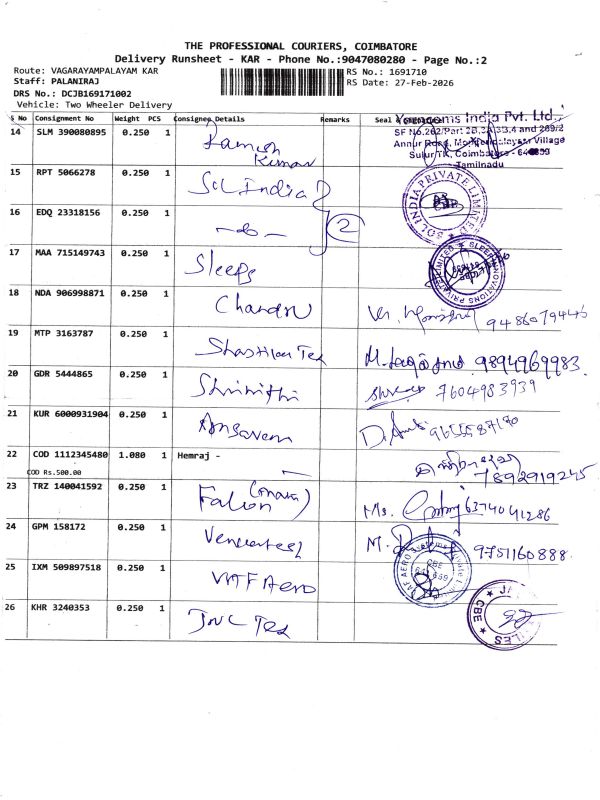 THE PROFESSIONAL COURIERS, COIMBATORE
Delivery Runsheet - KAR - Phone No.:9047080280 - Page No.:2
Route: VAGARAYAMPALAYAM KAR
RS No.: 1691710
Staff: PALANIRAJ
RS Date: 27-Feb-2026
DRS No.: DCJB169171002
Vehicle: Two Wheeler Delivery
S No Consignment No Weight PCS Consignee Details Remarks Seal &
India Pvt. Ltd.,
14 SLM 390080895 0.250 1 Ramesh Kumar
SF No.262/Part 2B,3A,3B,4 and 269/2
Annur Road, Village
Sulur TK, Coimbatore -
Tamilnadu
15 RPT 5066278 0.250 1 Sol India
SOL INDIA PRIVATE LIMITED
16 EDQ 23318156 0.250 1 -do- 2
17 MAA 715149743 0.250 1 Sleeps
18 NDA 906998871 0.250 1 Chandru 9486079446
19 MTP 3163787 0.250 1 9894969983
20 GDR 5444865 0.250 1 Shrinithi 7604983939
21 KUR 6000931904 0.250 1 9655587170
22 COD 1112345480 1.080 1 Hemraj - 7892919245
COD Rs.500.00
23 TRZ 140041592 0.250 1 Falcon Ms. 6374041286
24 GPM 158172 0.250 1 M. 9751160888
25 IXM 509897518 0.250 1 Aero
CBE
26 KHR 3240353 0.250 1 Tex
CBE